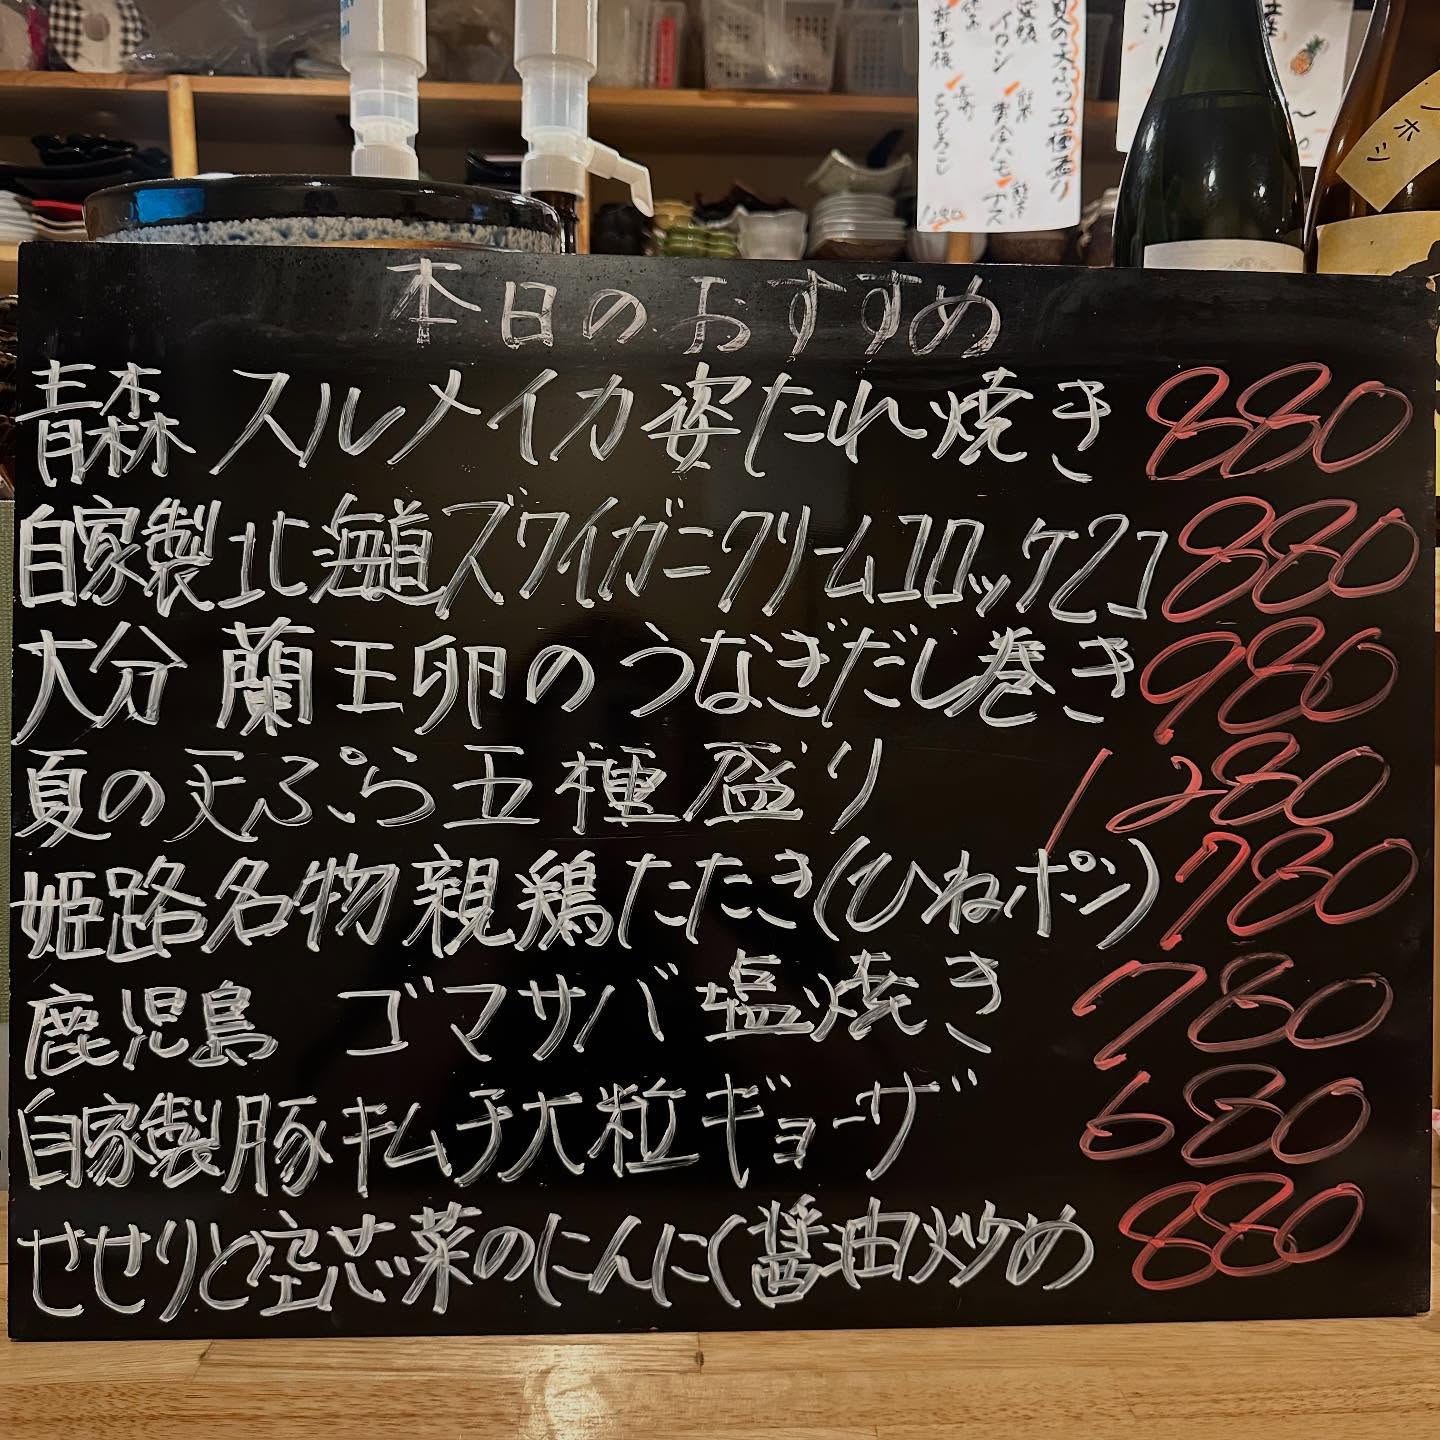 夏の天ぷら五種盛り
イワシ
ナス
とうもろこし
1280
ノホシ
本日のおすすめ
青森 スルメイカ姿たれ焼き 880
自家製北海道ズワイガニクリームコロッケ2コ 880
大分 蘭王卵のうなぎだし巻き 980
夏の天ぷら五種盛り 1280
姫路名物親鶏たたき(ひねポン) 780
鹿児島 ゴマサバ塩焼き 780
自家製豚キムチ大粒ギョーザ 680
せせりと空芯菜のにんにく醤油炒め 880